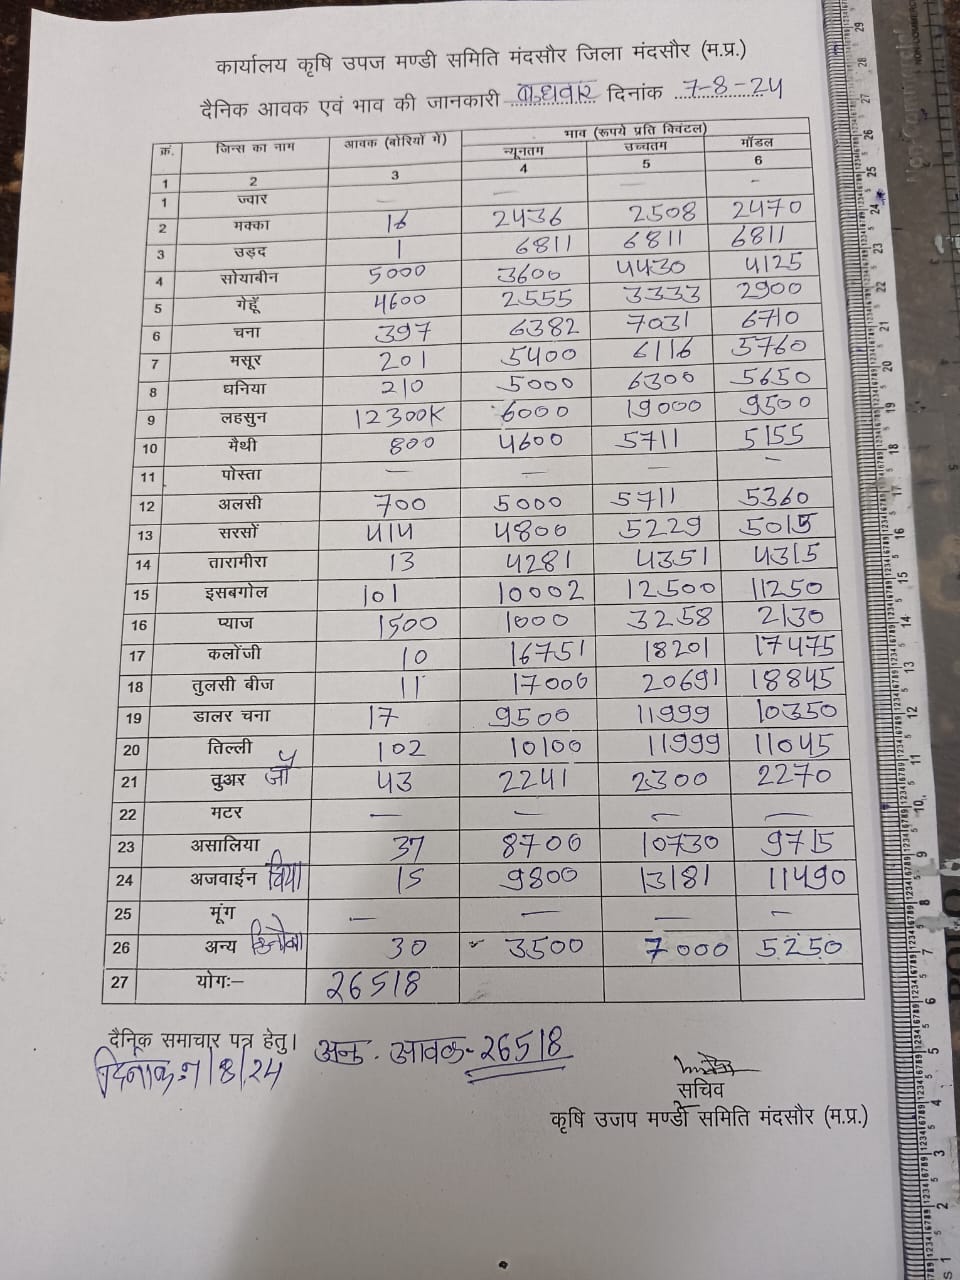 कार्यालय कृषि उपज मण्डी समिति मंदसौर जिला मंदसौर (म.प्र.)
दैनिक आवक एवं भाव की जानकारी बुधवार दिनांक 7-8-24
क्र. जिन्स का नाम आवक (बोरियों में) भाव (रूपये प्रति क्विंटल)
न्यूनतम उच्चतम मॉडल
1 2 3 4 5 6
1 ज्वार — — — -
2 मक्का 16 2436 2508 2470
3 उड़द 1 6811 6811 6811
4 सोयाबीन 5000 3600 4430 4125
5 गेहूँ 4600 2555 3333 2900
6 चना 397 6382 7031 6710
7 मसूर 201 5400 6116 5760
8 धनिया 210 5000 6300 5650
9 लहसुन 12300K 6000 19000 9500
10 मैथी 800 4600 5711 5155
11 पोस्ता — — — —
12 अलसी 700 5000 5711 5360
13 सरसों 414 4800 5229 5015
14 तारामीरा 13 4281 4351 4315
15 इसबगोल 101 10002 12500 11250
16 प्याज 1500 1000 3258 2130
17 कलोंजी 10 16751 18201 17475
18 तुलसी बीज 11 17000 20691 18845
19 डालर चना 17 9500 11999 10350
20 तिल्ली 102 10100 11999 11045
21 तुअर जौ 43 2241 2300 2270
22 मटर — — — —
23 असालिया 37 8700 10730 9715
24 अजवाईन चिया 15 9800 13181 11490
25 मूंग — — — —
26 अन्य 30 3500 7000 5250
27 योगः– 26518
दैनिक समाचार पत्र हेतु।
आवक-26518
दिनांक 7/8/24
सचिव
कृषि उजप मण्डी समिति मंदसौर (म.प्र.)